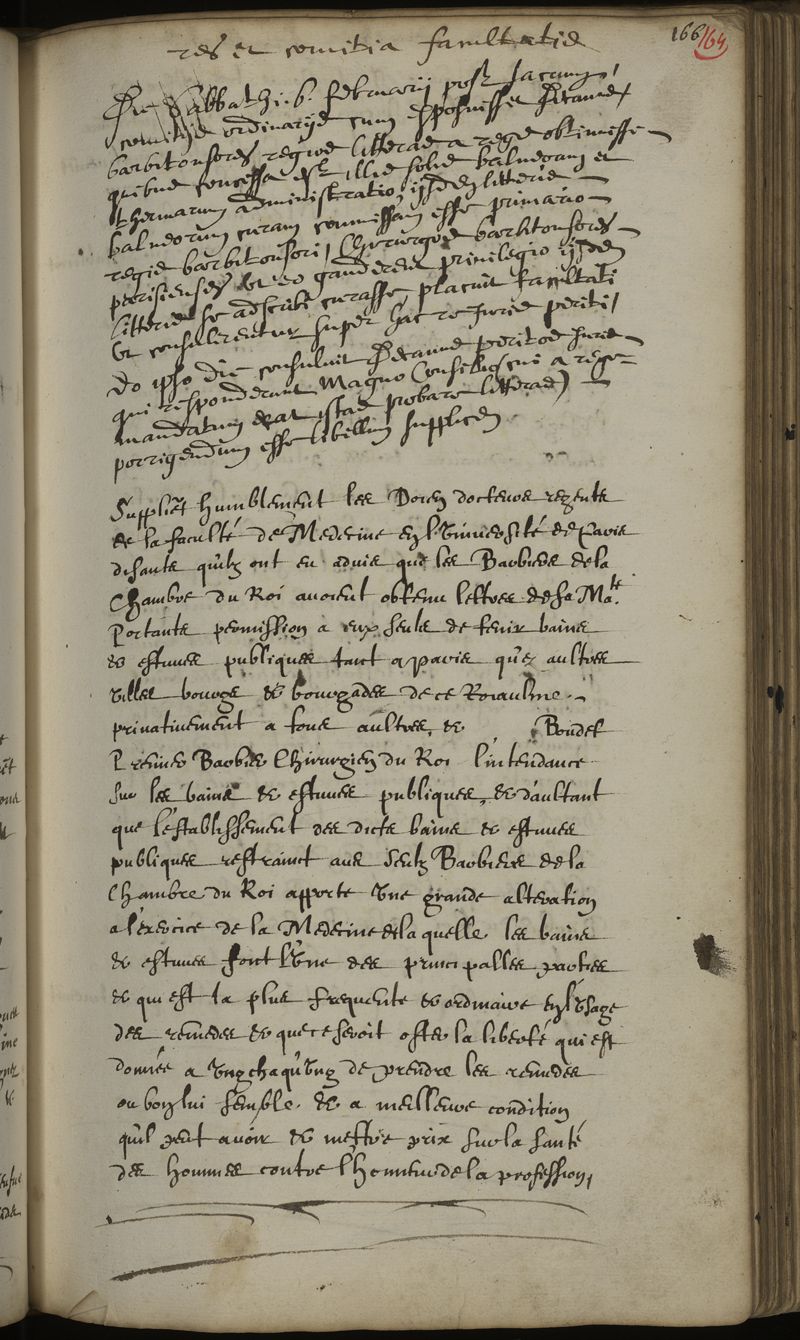 res et comitia facultatis
166
164
Die Sabbathi 6. Februarij post sacrum,
comitijs ordinarijs cum exposuisset Decanus
barbitonsores regios litteras a rege obtinuisse
quibus concessa est illis solis balnearum et
thermarum administratio, ijsdem litteris
balneorum curam commissam esse primario
regis barbitonsori, Chirurgos barbitonsores
parisienses ut eo gauderent privilegio ijsdem
litteris se adscribi curasse, placuit facultati
ut consulerentur super hac re Juris periti,
Eo ipso die consuluit Decanus peritos Juris
qui responderunt Magno Consilio (cui a rege
mandatum erat istas probare litteras)
porrigendum esse libellum supplicem.
Supplient humblement les Doien docteurs regents
de la faculté de Medecine en l'Université de Paris
disants qu'ilz ont eu advis que les Barbiers de la
Chambre du Roi avoient obtenu lettres de sa Ma.té
Portants permission a eux seuls de tenir bains
et estuves publiques tant a paris qu'es aultres
villes bourgs et bourgades de ce Roiaulme
privativement a tous aultres, et Boudet
Premier Barbier Chirurgien du Roi l'intendance
sur les bains et estuves publiques, et d'aultant
que l'establissement des dicts bains et estuves
publiques restrainct aus seulz Barbiers de la
Chambre du Roi apporte une grande alteration
a l'exercice de la Medecine de laquelle les bains
et estuves sont l'une des principalles parties
et qui est la plus frequente et ordinaire en l'usage
des remedes et que ce seroit oster la liberté qui est
donnée a ung chaq'ung de prendre les remedes
ou bon lui semble et a meilleure condition
qu'il peut avoir et mettre prix sur la santé
des hommes contre l'honneur de la profession,